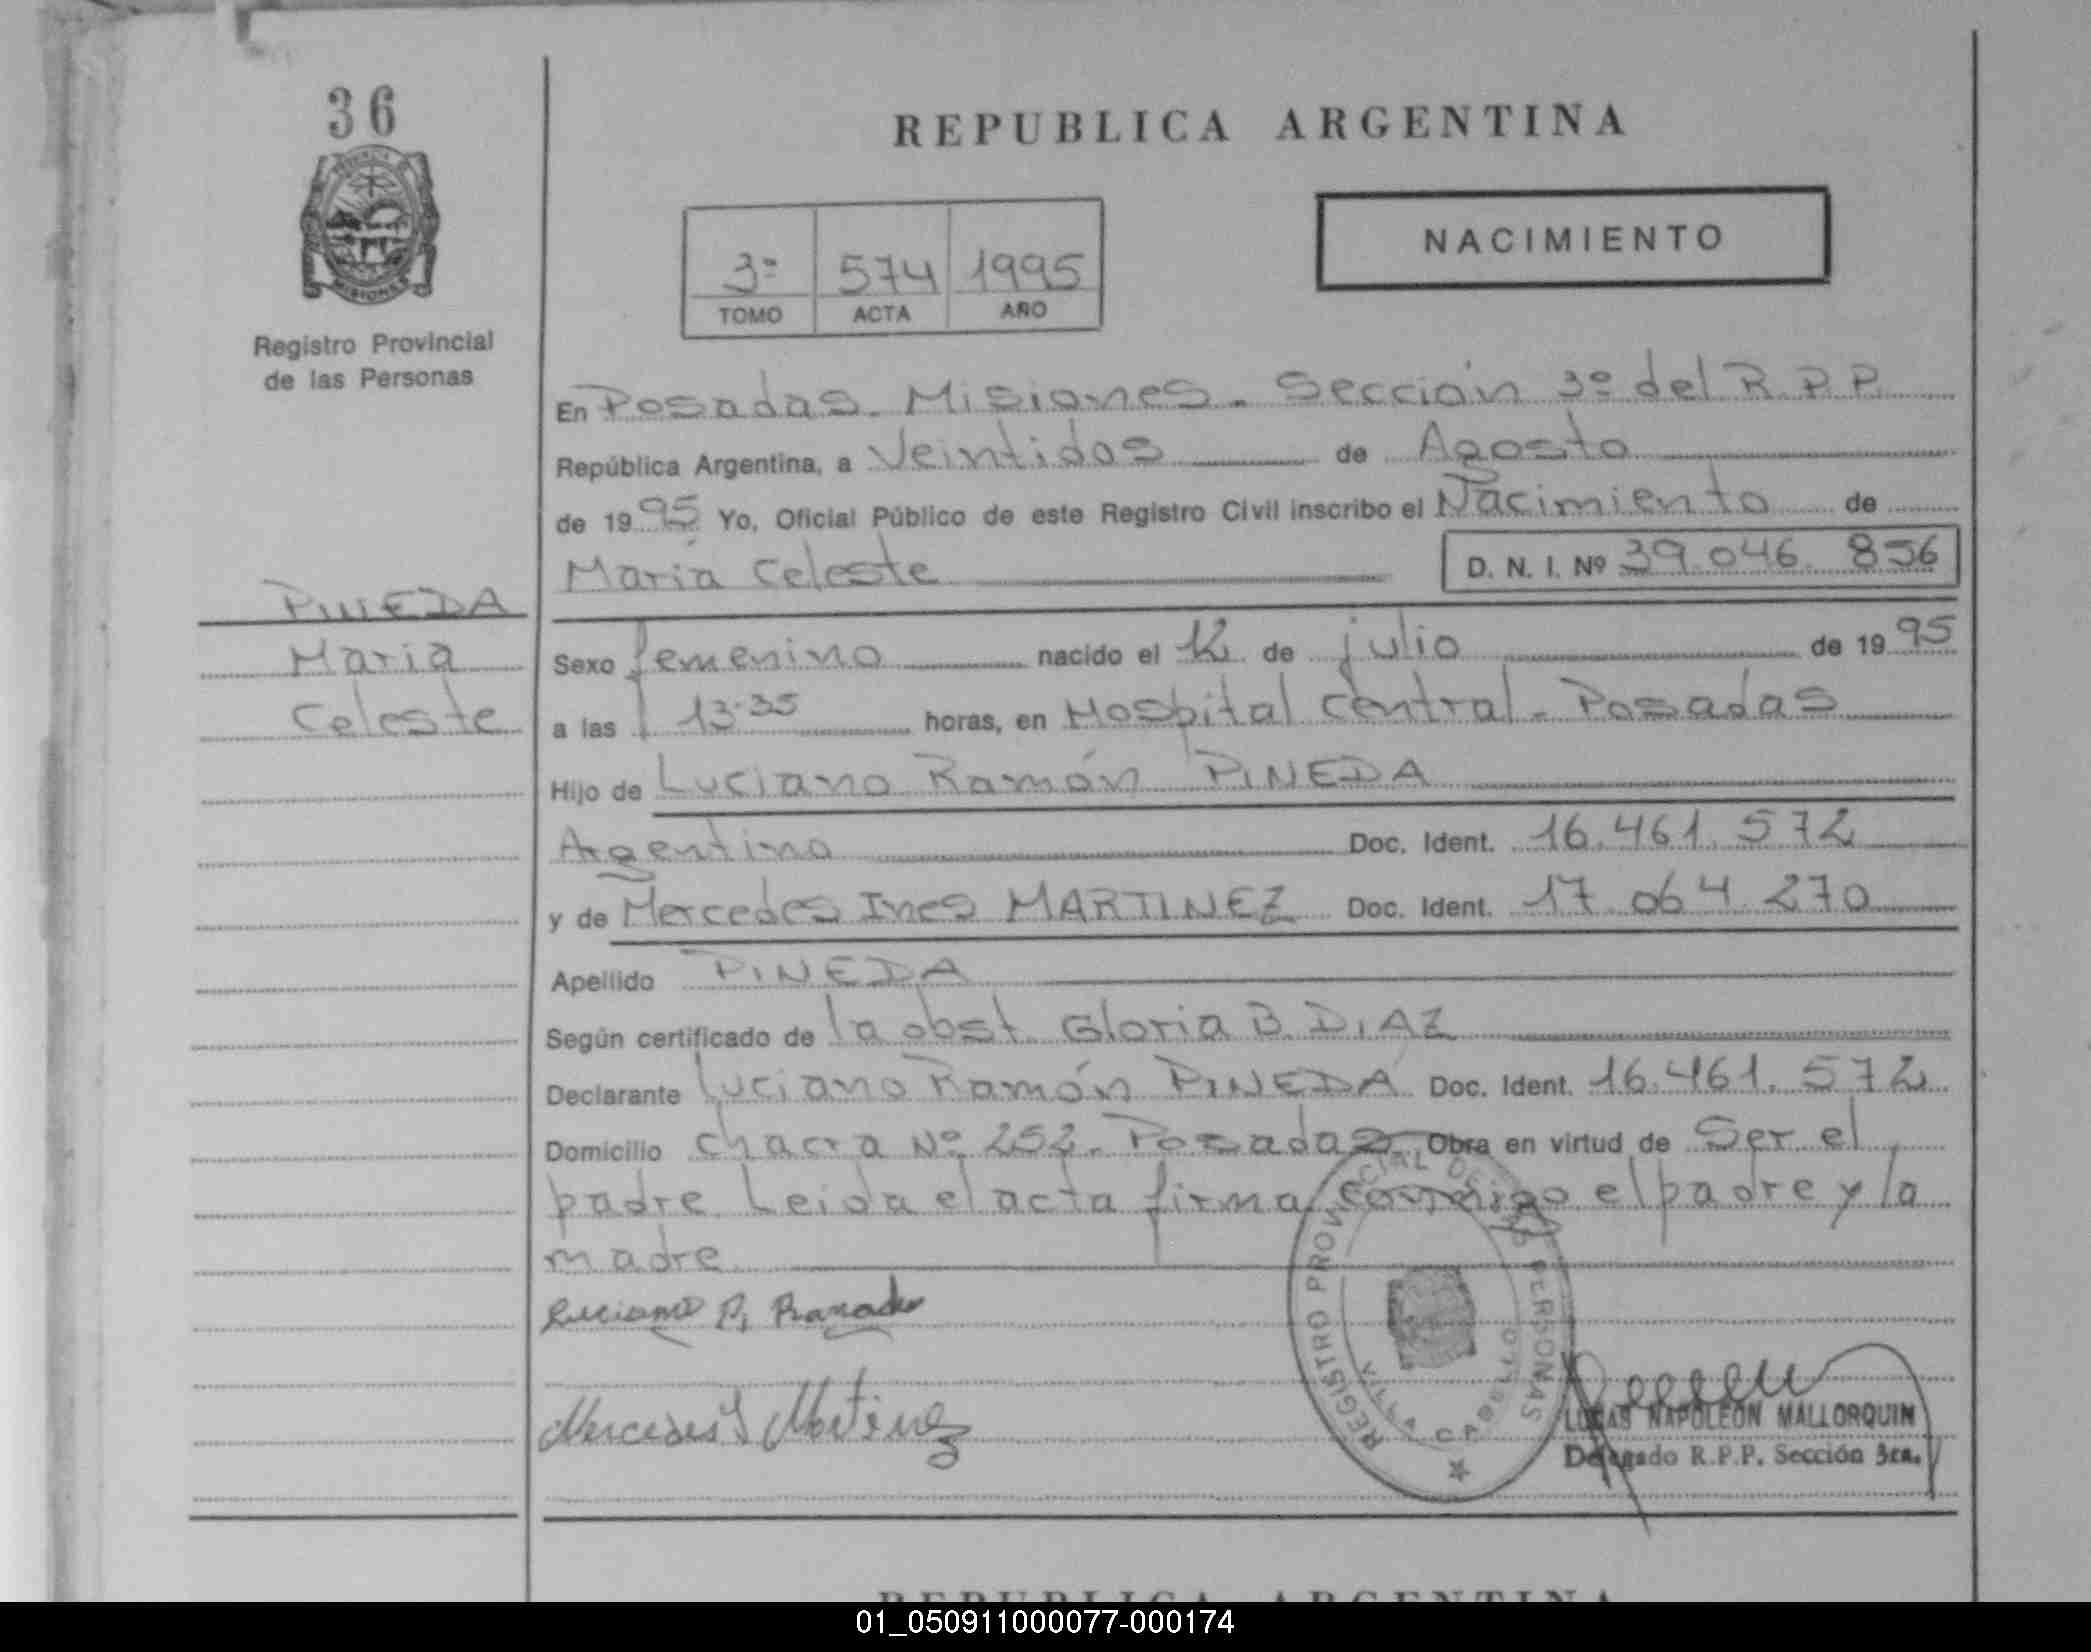 36
MISIONES
Registro Provincial
de las Personas
REPUBLICA ARGENTINA
3º 574 1995
TOMO ACTA AÑO
NACIMIENTO
En Posadas. Misiones. Sección 3º del R.P.P.
República Argentina, a Veintidos de Agosto
de 1995 Yo, Oficial Público de este Registro Civil inscribo el Nacimiento de
María Celeste D. N. I. Nº 39.046.856
PINEDA
Maria
Celeste
Sexo femenino nacido el 12 de julio de 1995
a las 13.35 horas, en Hospital Central. Posadas
Hijo de Luciano Ramón PINEDA
Argentino Doc. Ident. 16.461.572
y de Mercedes Ines MARTINEZ Doc. Ident. 17.064.270
Apellido PINEDA
Según certificado de la obst. Gloria B. DIAZ
Declarante Luciano Ramón PINEDA Doc. Ident. 16.461.572
Domicilio Chacra Nº 252. Posadas Obra en virtud de Ser el
padre. Leida el acta firma conmigo el padre y la
madre
Luciano
Mercedes I Martinez
REGISTRO PROVINCIAL DE LAS PERSONAS
VILLA CABELLO
LUCAS NAPOLEON MALLORQUIN
Delegado R.P.P. Sección 3ra.
REPUBLICA ARGENTINA
01_050911000077-000174